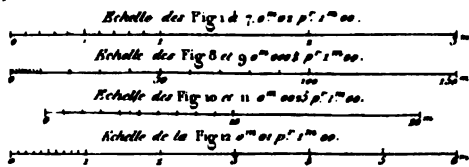 Echelle des Fig 1 à 7. 0ᵐ 02 pʳ 1ᵐ 00.
0 1 2 3 m
Echelle des Fig 8 et 9 0ᵐ pʳ 1ᵐ 00.
0 50 100 150 m
Echelle des Fig 10 et 11 0ᵐ pʳ 1ᵐ 00.
0
Echelle de la Fig 12 0ᵐ 01 pʳ 1ᵐ 00.
0 1 2 3 4 5 6 m